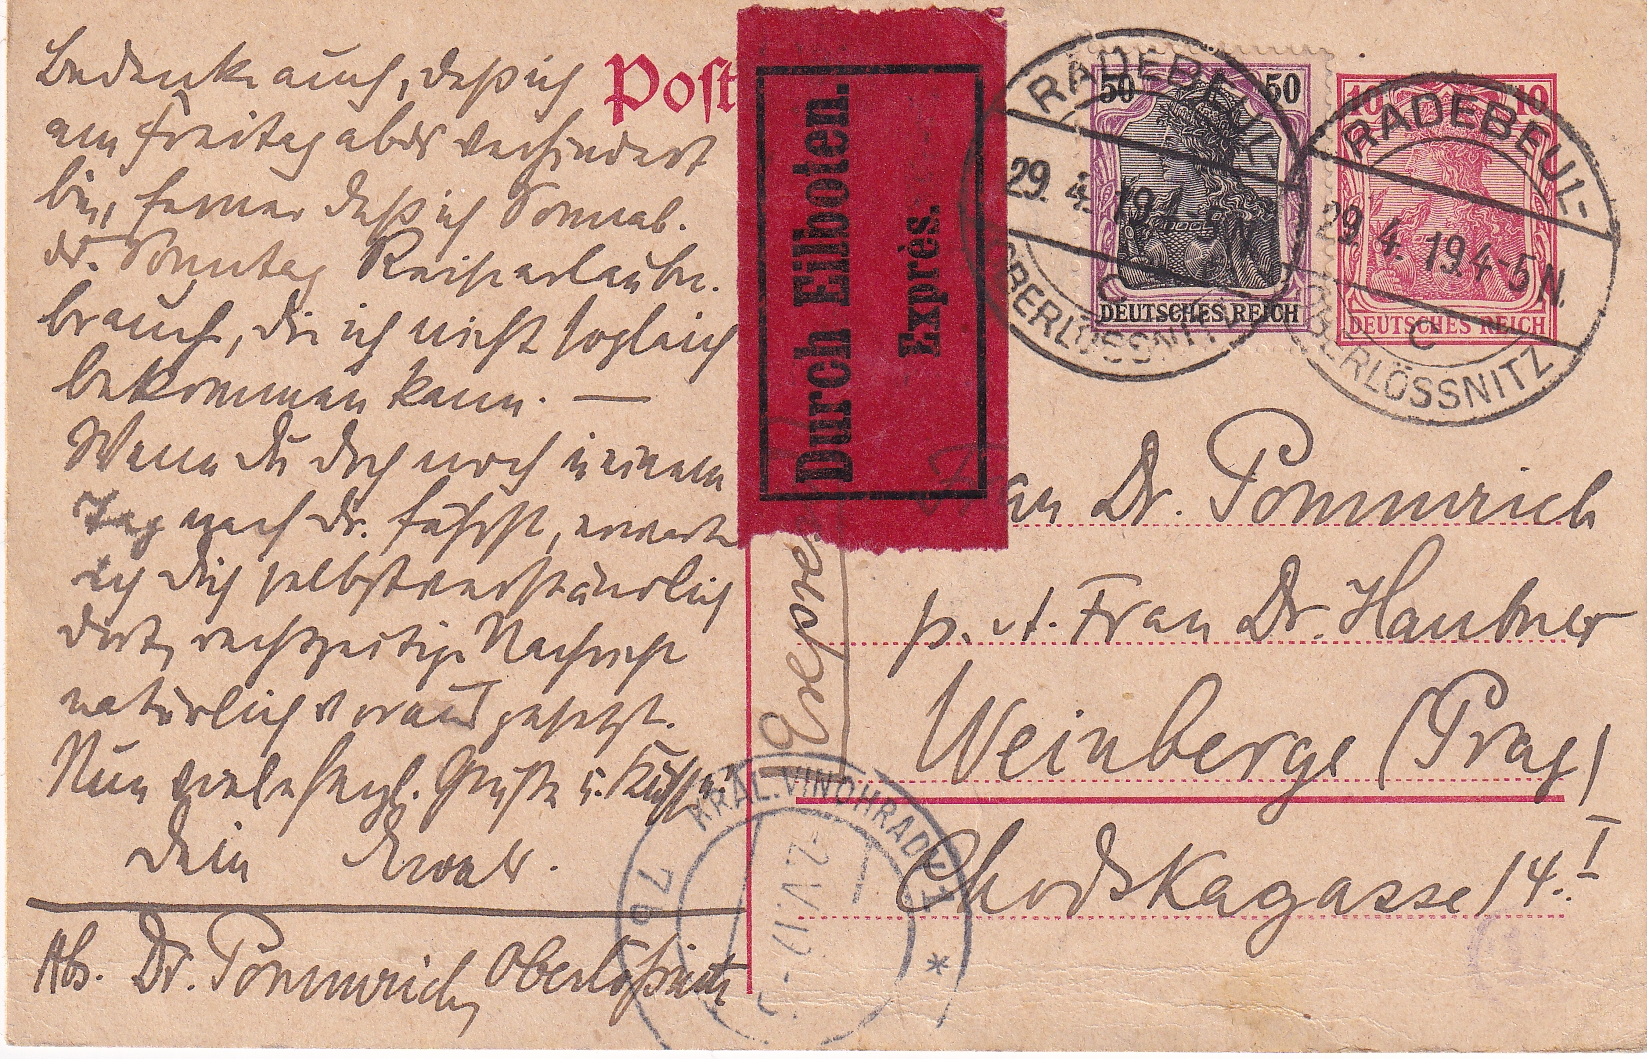 Bedenke auch, daß ich
am Freitag abds verhindert
bin, ferner daß ich Sonnab.
od. Sonntag Reiseerlaubn.
brauche, die ich nicht sogleich
bekommen kann. —
Wenn Du doch noch in einem
Tag nach Dr. fährst, erwarte
ich Dich selbstverständlich
dort, rechtzeitige Nachricht
natürlich vorausgesetzt.
Nun viele herzl. Grüße u. Küsse
Dein Ewald.
Abs. Dr. Pommrich, Oberlößnitz
Post
Durch Eilboten.
Exprès.
Expres
50 50
DEUTSCHES REICH
10 10
DEUTSCHES REICH
RADEBEUL-
29. 4. 19. 4-5 N.
C
OBERLÖSSNITZ
RADEBEUL-
29. 4. 19. 4-5 N.
C
OBERLÖSSNITZ
Frau Dr. Pommrich
p. A. Frau Dr. Haubner
Weinberge (Prag)
Chodskagasse 14. I
KRÁL. VINOHRADY 1